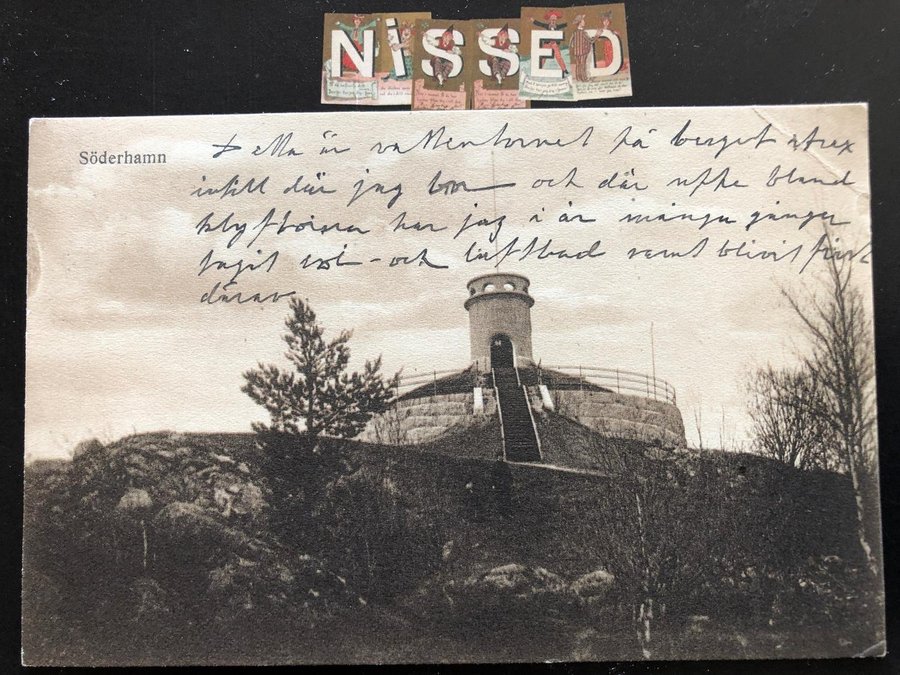 NiSSED
Söderhamn
Detta är vattentornet på berget strax
intill där jag bor och där uppe bland
klyftorna har jag i år många gånger
tagit sol- och luftbad samt blivit frisk
därav